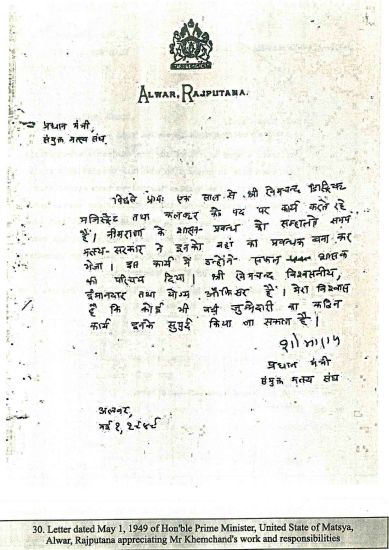 ALWAR, RAJPUTANA.
प्रधान मंत्री,
संयुक्त मत्स्य संघ.
पिछले प्रायः एक साल से श्री खेमचन्द डिस्ट्रिक्ट
मजिस्ट्रेट तथा कलक्टर के पद पर कार्य करते रहे
हैं। नीमराणा के शासन प्रबन्ध को सम्हालते समय
मत्स्य-सरकार ने इनको वहां का प्रबन्धक बना कर
भेजा। इस कार्य में उन्होंने सफल शासक
का परिचय दिया। श्री खेमचन्द विश्वसनीय,
ईमानदार तथा योग्य ऑफिसर हैं। मेरा विश्वास
है कि कोई भी बड़ी जुम्मेदारी का कठिन
कार्य इनके सुपुर्द किया जा सकता है।
प्रधान मंत्री
संयुक्त मत्स्य संघ
अलवर,
मई १, १९४९
30. Letter dated May 1, 1949 of Hon'ble Prime Minister, United State of Matsya,
Alwar, Rajputana appreciating Mr Khemchand's work and responsibilities